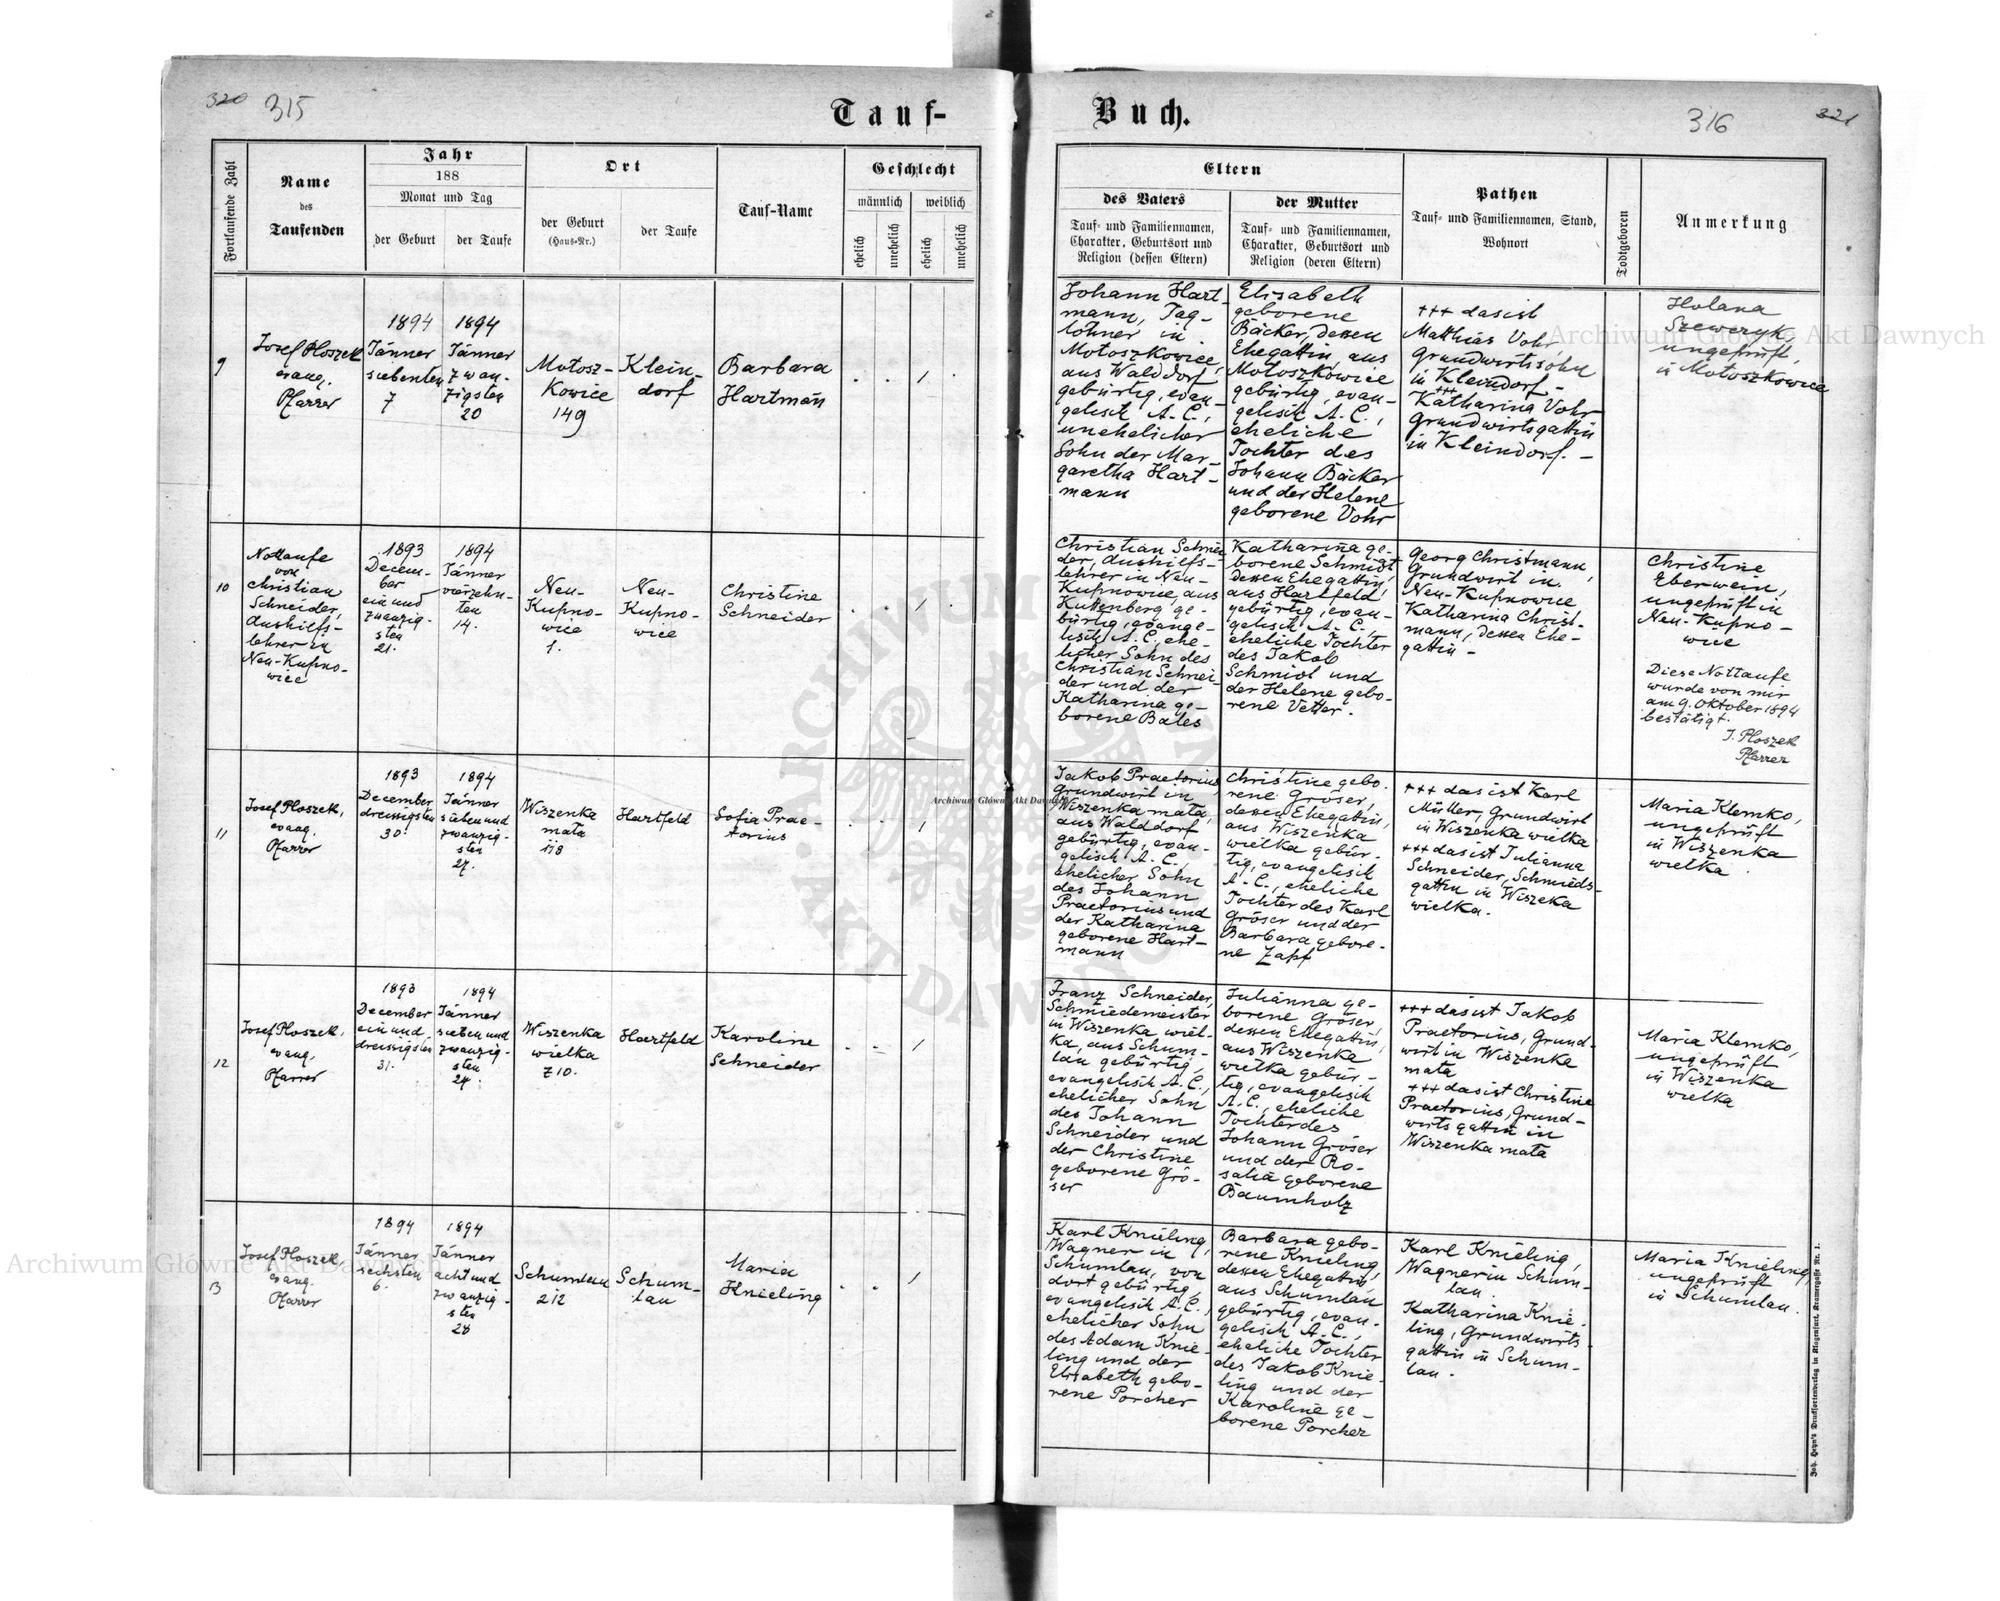 320 315
Tauf-
Buch.
316 321
Fortlaufende Zahl
Name
des
Taufenden
Jahr
188
Monat und Tag
der Geburt
der Taufe
Ort
der Geburt
(Haus-Nr.)
der Taufe
Tauf-Name
Geschlecht
männlich
weiblich
ehelich
unehelich
ehelich
unehelich
Eltern
des Vaters
Tauf- und Familiennamen,
Charakter, Geburtsort und
Religion (dessen Eltern)
der Mutter
Tauf- und Familiennamen,
Charakter, Geburtsort und
Religion (deren Eltern)
Pathen
Tauf- und Familiennamen, Stand,
Wohnort
Todtgeboren
Anmerkung
9
Josef Ploszek
evang.
Pfarrer
1894
Jänner
siebenten
7
1894
Jänner
zwan-
zigsten
20
Motosz-
kowice
149
Klein-
dorf
Barbara
Hartman̄
Johann Hart-
mann, Tag-
löhner in
Motoszkowice,
aus Walddorf
gebürtig, evan-
gelisch A. C.,
unehelicher
Sohn der Mar-
garetha Hart-
mann
Elisabeth
geborene
Bäcker, dessen
Ehegattin, aus
Motoszkowice
gebürtig, evan-
gelisch A. C.,
eheliche
Tochter des
Johann Bäcker
und der Helene
geborene Vohr
+++ das ist
Matthias Vohr
Grundwirtssohn
in Kleindorf -
+++
Katharina Vohr
Grundwirtsgattin
in Kleindorf. -
Holana
Szewczyk,
ungeprüft,
in Motoszkowice
10
Nottaufe
von
Christian
Schneider,
Aushilfs-
lehrer in
Neu-Kupno-
wice
1893
Decem-
ber
ein und
zwanzig-
sten
21.
1894
Jänner
vierzehn-
ten
14.
Neu-
Kupno-
wice
1.
Neu-
Kupno-
wice
Christine
Schneider
Christian Schnei-
der, Aushilfs-
lehrer in Neu-
Kupnowice, aus
Kuttenberg ge-
bürtig, evange-
lisch A. C. ehe-
licher Sohn des
Christian Schnei-
der und der
Katharina ge-
borene Bales
Katharina ge-
borene Schmidt
dessen Ehegattin,
aus Hartfeld
gebürtig, evan-
gelisch A. C.,
eheliche Tochter
des Jakob
Schmidt und
der Helene gebo-
rene Vetter.
Georg Christmann,
Grundwirt in
Neu-Kupnowice,
Katharina Christ-
mann, dessen Ehe-
gattin -
Christine
Eberwein,
ungeprüft in
Neu-Kupno-
wice
Diese Nottaufe
wurde von mir
am 9. Oktober 1894
bestätigt.
J. Ploszek
Pfarrer
11
Josef Ploszek,
evang.
Pfarrer
1893
December
dreissigsten
30.
1894
Jänner
sieben und
zwanzig-
sten
27.
Wiszenka
mała
118
Hartfeld
Sofia Prae-
torius
Jakob Praetorius,
Grundwirt in
Wiszenka mała,
aus Walddorf
gebürtig, evan-
gelisch A. C.,
ehelicher Sohn
des Johann
Praetorius und
der Katharina
geborene Hart-
mann
Christine gebo-
rene Gröser,
dessen Ehegattin,
aus Wiszenka
wielka gebür-
tig, evangelisch
A. C., eheliche
Tochter des Karl
Gröser und der
Barbara gebore-
ne Zapf
+++ das ist Karl
Müller, Grundwirt
in Wiszenka wielka
+++ das ist Julianna
Schneider, Schmieds-
gattin in Wiszeka
wielka.
Maria Klemko,
ungeprüft
in Wiszenka
wielka
12
Josef Ploszek,
evang.
Pfarrer
1893
December
ein und
dreissigsten
31.
1894
Jänner
sieben und
zwanzig-
sten
27.
Wiszenka
wielka
210.
Hartfeld
Karoline
Schneider
Franz Schneider,
Schmiedemeister
in Wiszenka wiel-
ka, aus Schum-
lau gebürtig,
evangelisch A. C.,
ehelicher Sohn
des Johann
Schneider und
der Christine
geborene Grö-
ser
Julianna ge-
borene Gröser,
dessen Ehegattin,
aus Wiszenka
wielka gebür-
tig, evangelisch
A. C., eheliche
Tochter des
Johann Gröser
und der Ro-
salia geborene
Baumholz
+++ das ist Jakob
Praetorius, Grund-
wirt in Wiszenka
mała
+++ das ist Christine
Praetorius, Grund-
wirtsgattin in
Wiszenka mała
Maria Klemko,
ungeprüft
in Wiszenka
wielka
13
Josef Ploszek,
evang.
Pfarrer
1894
Jänner
sechsten
6.
1894
Jänner
acht und
zwanzig-
sten
28
Schumlau
212
Schum-
lau
Maria
Knieling
Karl Knieling,
Wagner in
Schumlau, von
dort gebürtig,
evangelisch A. C.,
ehelicher Sohn
des Adam Knie-
ling und der
Elisabeth gebo-
rene Porcher
Barbara gebo-
rene Knieling,
dessen Ehegattin,
aus Schumlau
gebürtig, evan-
gelisch A. C.,
eheliche Tochter
des Jakob Knie-
ling und der
Karoline ge-
borene Porcher
Karl Knieling,
Wagner in Schum-
lau.
Katharina Knie-
ling, Grundwirts-
gattin in Schum-
lau.
Maria Knieling,
ungeprüft
in Schumlau.
Joh. Heyn's Drucksortenverlag in Klagenfurt, Kramergasse Nr. 1.
Archiwum Główne Akt Dawnych
Archiwum Główne Akt Dawnych
Archiwum Główne Akt Dawnych
ARCHIWUM GŁÓWNE AKT DAWNYCH